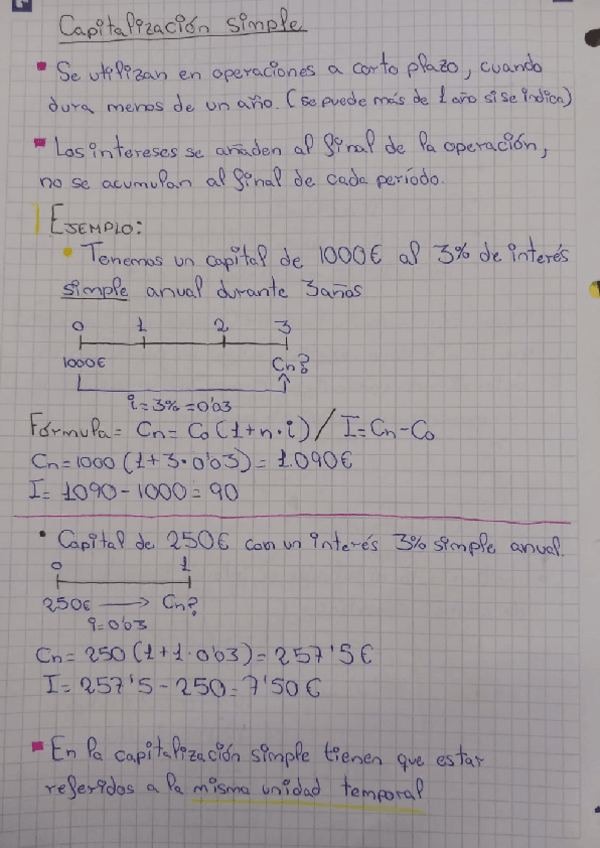 Capitalización simple
Se utilizan en operaciones a corto plazo, cuando
dura menos de un año. (se puede más de 1 año si se indica)
Los intereses se añaden al final de la operación,
no se acumulan al final de cada período.
EJEMPLO:
Tenemos un capital de 1000€ al 3% de interés
simple anual durante 3 años
0 1 2 3
1000€ Cn?
i=3%=0'03
Fórmula= Cn= Co(1+n·i) / I=Cn-Co
Cn=1000 (1+3·0'03)= 1.090€
I= 1090-1000= 90
Capital de 250€ con un interés 3% simple anual.
0 1
250€ → Cn?
i=0'03
Cn= 250 (1+1·0'03)= 257'5€
I= 257'5-250= 7'50€
En la capitalización simple tienen que estar
referidos a la misma unidad temporal